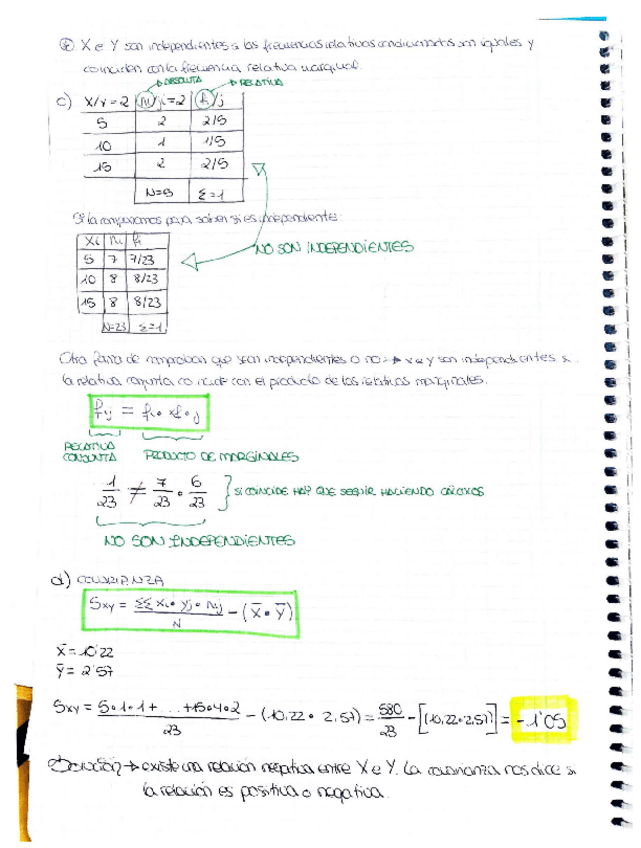 ⊛ X e Y son independientes si las frecuencias relativas condicionantes son iguales y
coinciden con la frecuencia relativa marginal.
→ ABSOLUTA → RELATIVA
c) X/Y=2 ni/j=2 fi/j
5 2 2/5
10 1 1/5
15 2 2/5
N=5 Σ=1
Si la comparamos para saber si es independiente:
NO SON INDEPENDIENTES
Xi ni fi
5 7 7/23
10 8 8/23
15 8 8/23
N=23 Σ=1
Otra forma de comprobar que sean independientes o no → x e y son independientes si
la relativa conjunta coincide con el producto de las relativas marginales.
fij = fi• x f•j
RELATIVA CONJUNTA PRODUCTO DE MARGINALES
1/23 ≠ 7/23 • 6/23 } SI COINCIDE HAY QUE SEGUIR HACIENDO CÁLCULOS
NO SON INDEPENDIENTES
d) COVARIANZA
Sxy = ΣΣ xi• yj• nij / N - (X̄ • Ȳ)
X̄ = 10'22
Ȳ = 2'57
Sxy = 5•1•1+ ... +15•4•2 / 23 - (10,22 • 2,57) = 580/23 - [(10,22•2,57)] = -1'05
Solución → existe una relación negativa entre X e Y. La covarianza nos dice si
la relación es positiva o negativa.